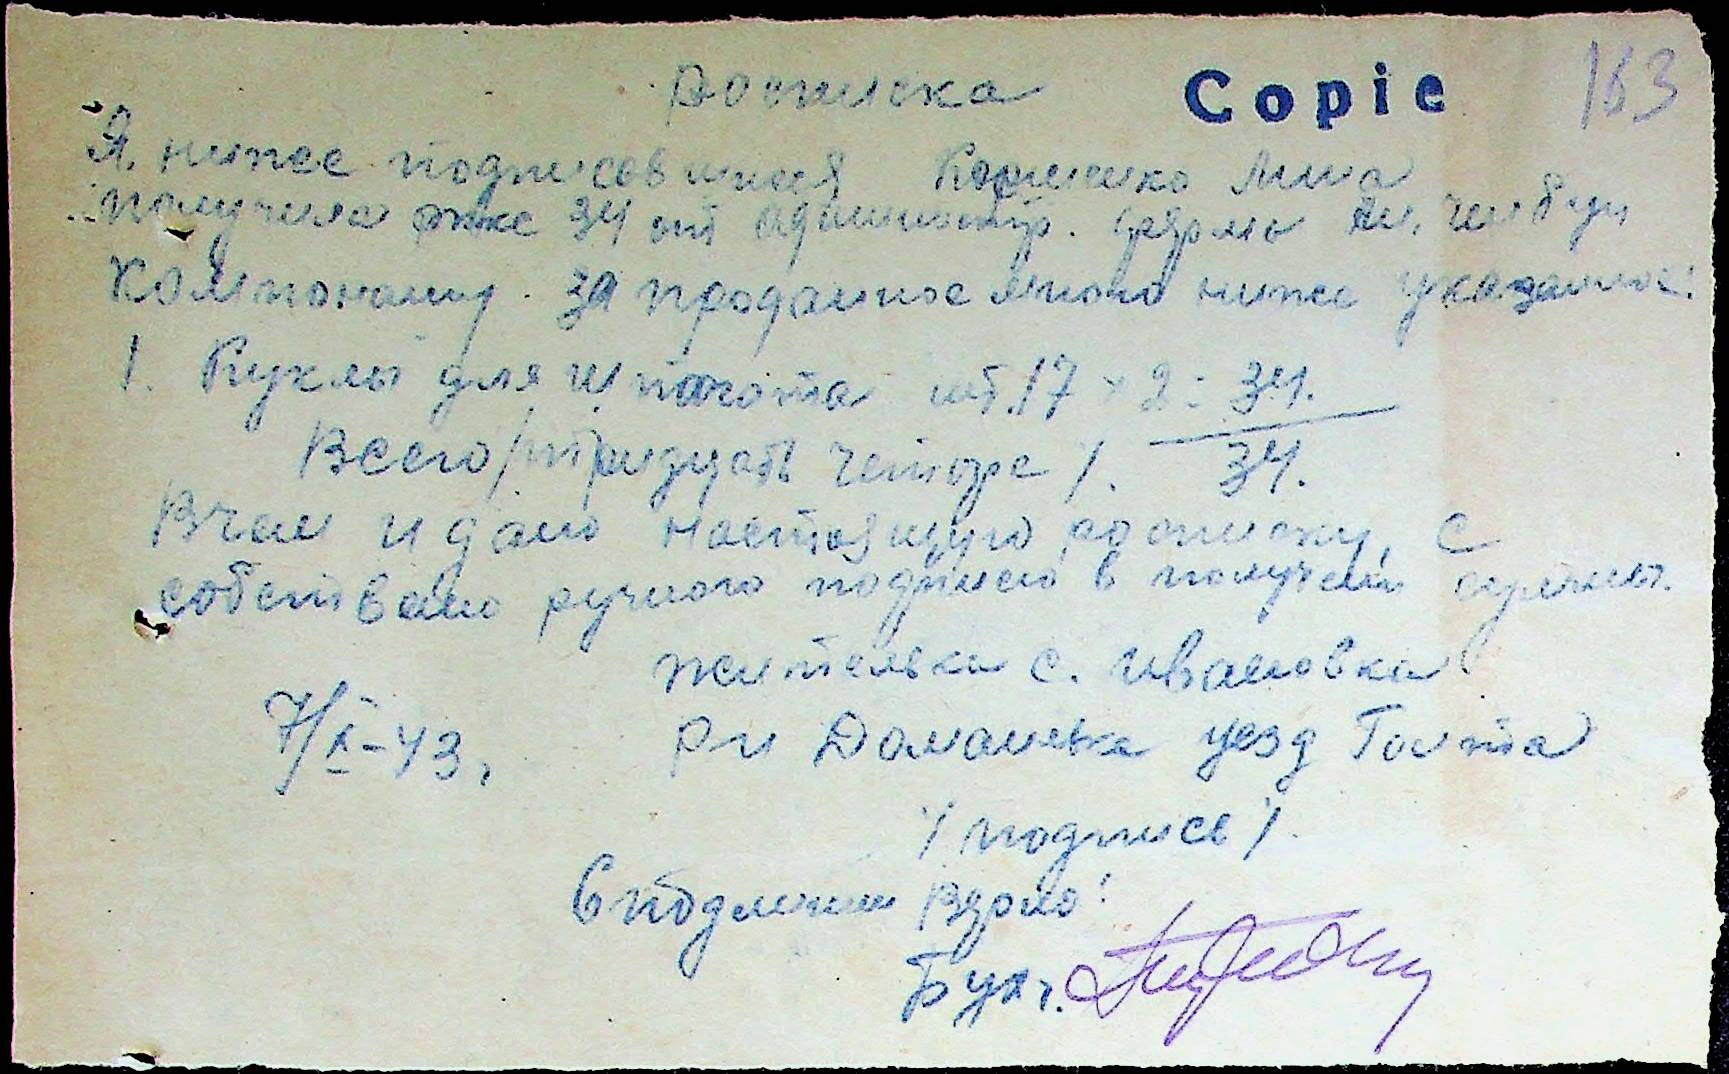 Росписка Copie 163
Я. ниже подписавшися Анна
получила 34 от администр. фермы
за проданное мною ниже указанное:
1. Куклы для шпагата шт. 17 × 2 = 34.
Всего /тридцать четоре/. 34.
Вчем и даю настоящую росписку, с
собствено ручного подписю в получении
жителька с. Ивановка
7/X-43. р-н Доманевка уезд Голта
/подпись/.
С подленим верно!
Бухг.